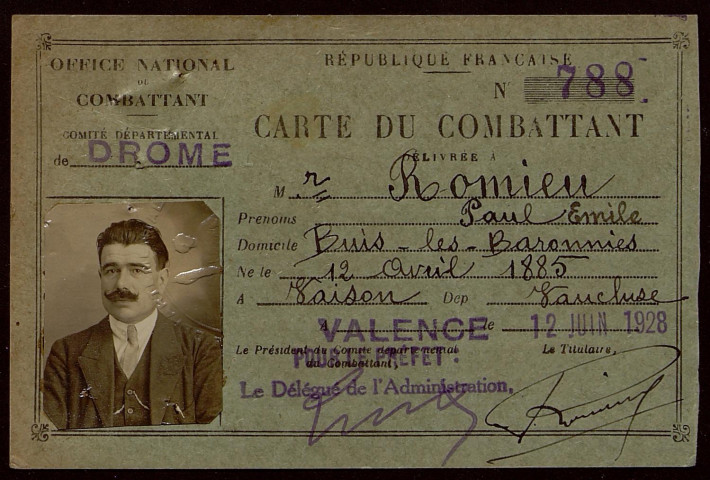 OFFICE NATIONAL
DU
COMBATTANT
COMITÉ DÉPARTEMENTAL
de DROME
RÉPUBLIQUE FRANÇAISE
N° 788
CARTE DU COMBATTANT
DÉLIVRÉE A
M r Romieu
Prenoms Paul Emile
Domicile Buis-les-Baronnies
Ne le 12 Avril 1885
A Vaison Dep Vaucluse
A VALENCE le 12 JUIN 1928
Le Président du Comite departemental
du Combattant,
Le Titulaire,
POUR LE PREFET:
Le Délégué de l'Administration,